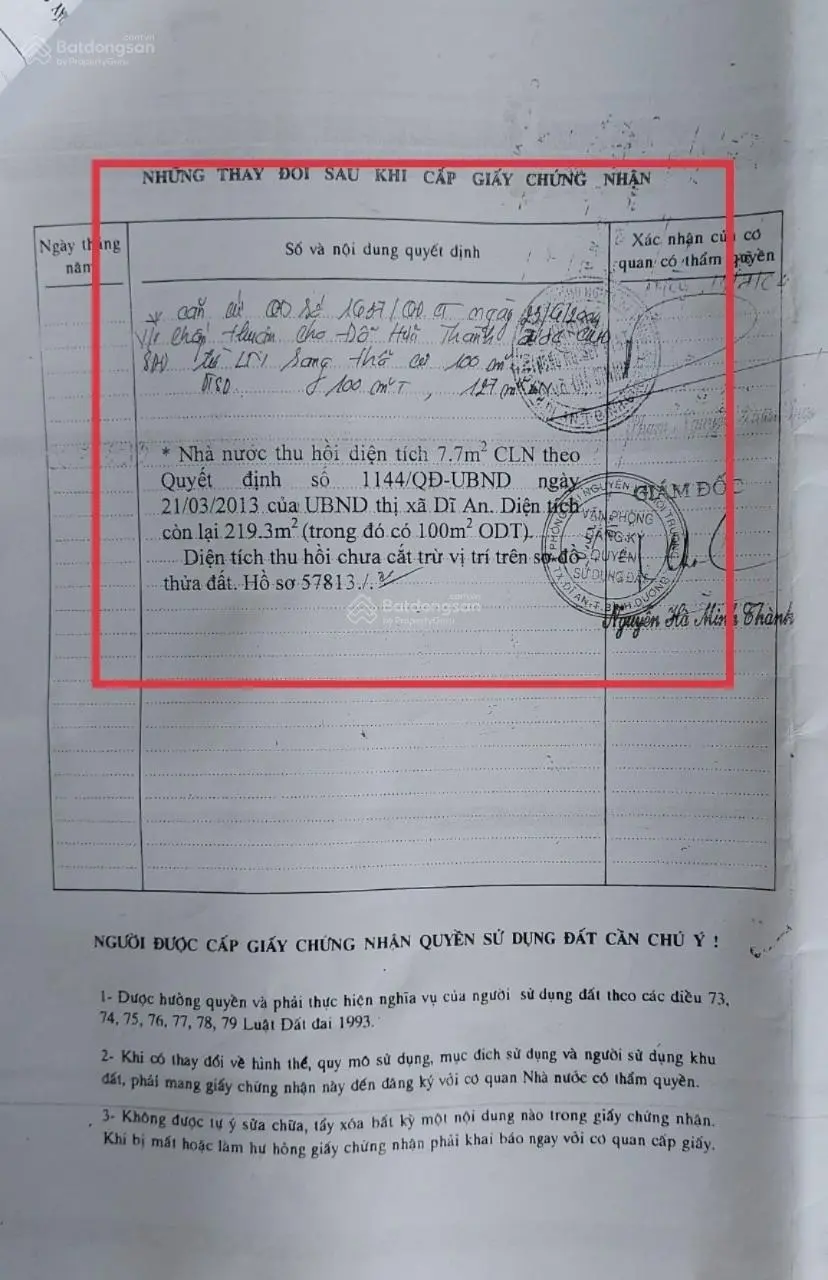 Batdongsan
.com.vn
by PropertyGuru
NHỮNG THAY ĐỔI SAU KHI CẤP GIẤY CHỨNG NHẬN
Ngày tháng năm
Số và nội dung quyết định
Xác nhận của cơ quan có thẩm quyền
căn cứ QĐ số 1637/QĐ ngày
chấp thuận cho Đỗ Hữu Thanh
sang thổ cư 100 m²
100 m² T, 127 m²
* Nhà nước thu hồi diện tích 7.7m² CLN theo
Quyết định số 1144/QĐ-UBND ngày
21/03/2013 của UBND thị xã Dĩ An. Diện tích
còn lại 219.3m² (trong đó có 100m² ODT).
Diện tích thu hồi chưa cắt trừ vị trí trên sơ đồ
thửa đất. Hồ sơ 57813./.
GIÁM ĐỐC
VĂN PHÒNG
ĐĂNG KÝ
QUYỀN
SỬ DỤNG ĐẤT
TX.DĨ AN-T.BÌNH DƯƠNG
Nguyễn Hà Minh Thành
Batdongsan
.com.vn
by PropertyGuru
NGƯỜI ĐƯỢC CẤP GIẤY CHỨNG NHẬN QUYỀN SỬ DỤNG ĐẤT CẦN CHÚ Ý !
1- Được hưởng quyền và phải thực hiện nghĩa vụ của người sử dụng đất theo các điều 73,
74, 75, 76, 77, 78, 79 Luật Đất đai 1993.
2- Khi có thay đổi về hình thể, quy mô sử dụng, mục đích sử dụng và người sử dụng khu
đất, phải mang giấy chứng nhận này đến đăng ký với cơ quan Nhà nước có thẩm quyền.
3- Không được tự ý sửa chữa, tẩy xóa bất kỳ một nội dung nào trong giấy chứng nhận.
Khi bị mất hoặc làm hư hỏng giấy chứng nhận phải khai báo ngay với cơ quan cấp giấy.